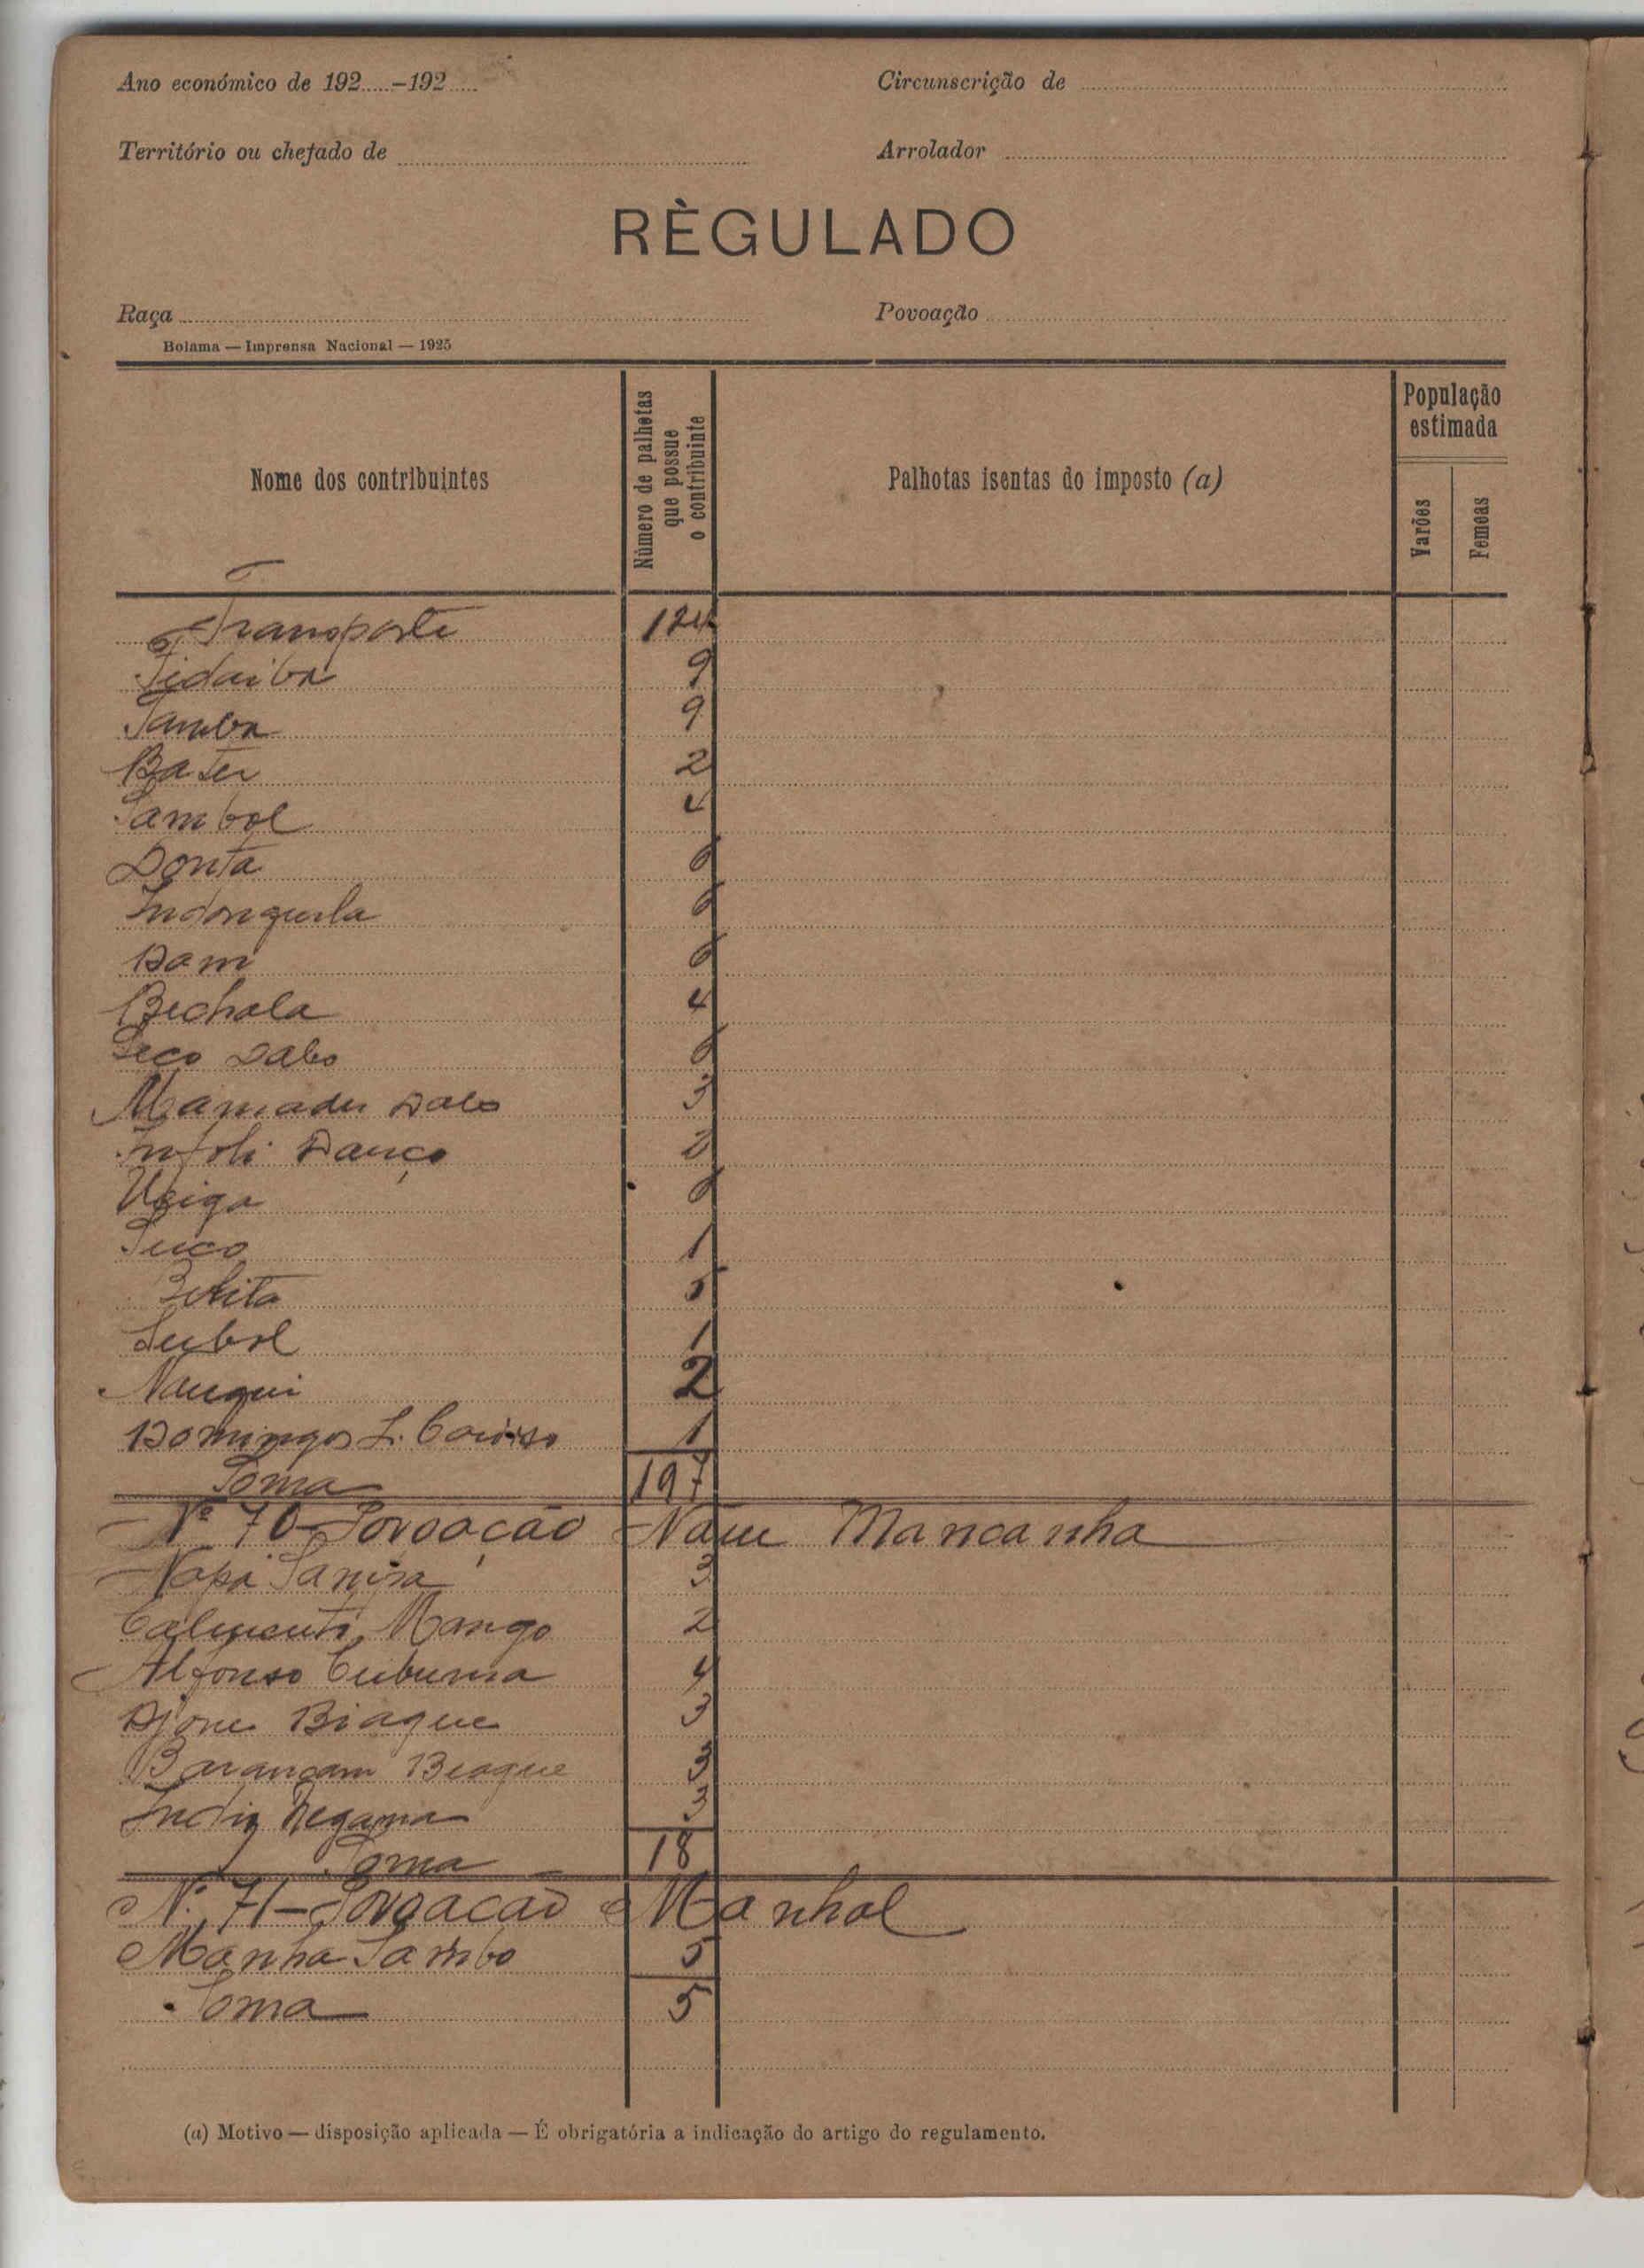 Ano económico de 192.....-192..... Circunscrição de
Território ou chefado de Arrolador
RÈGULADO
Raça Povoação
Bolama — Imprensa Nacional — 1925
Nome dos contribuintes
Número de palhotas que possue o contribuinte
Palhotas isentas do imposto (a)
População estimada
Varões
Femeas
Transporte 124
Sidaiba 9
Samba 9
Bater 2
Sambol 4
Donta 6
Indonguila 6
Dam 6
Bechala 4
Seco Dabo 6
Mamadu Dabo 3
Infoli Danço 2
Usiga 6
Suco 1
Betita 5
Subol 1
Nanqui 2
Domingos L. Cardoso 1
Soma 197
Nº 70 - Povoação Nam Mancanha
Napá Sanira 3
Calmenti Mango 2
Alfonso Cubuma 4
Djone Biague 3
Barançam Biague 3
Indiq Negama 3
Soma 18
Nº 71 - Povoação Manhal
Manha Sambo 5
Soma 5
(a) Motivo — disposição aplicada — É obrigatória a indicação do artigo do regulamento.